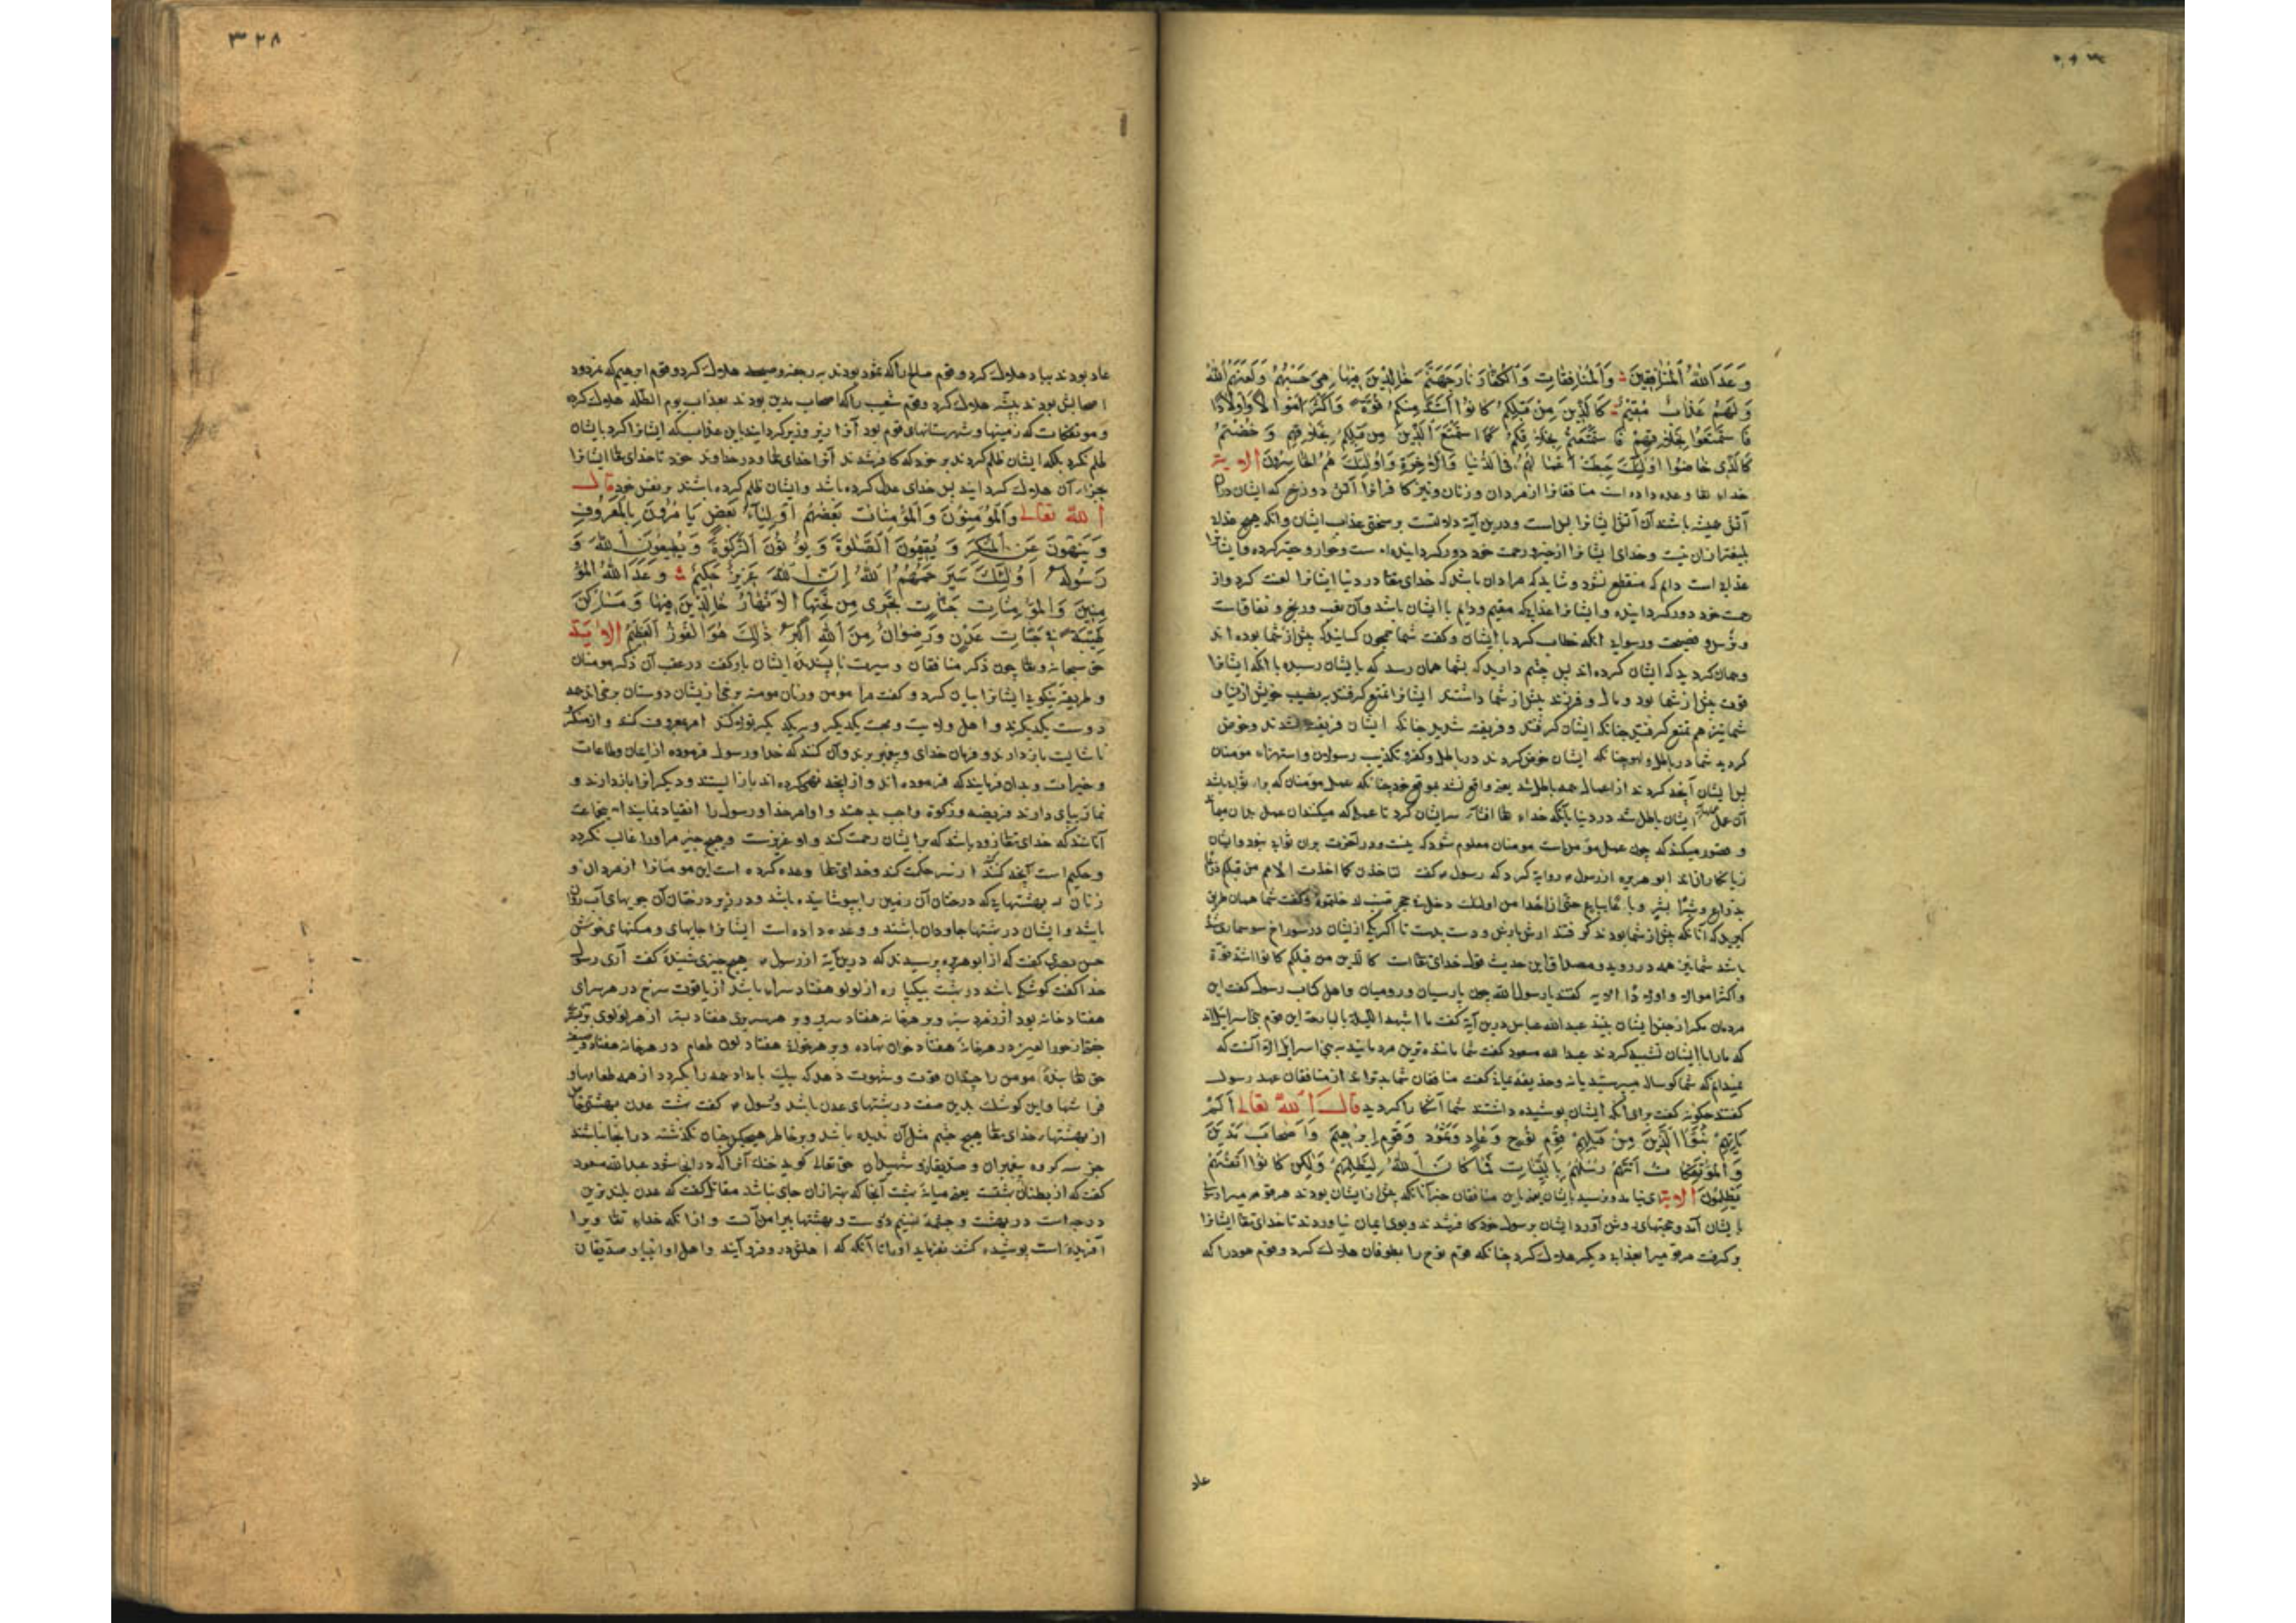 وَعَدَ اللّٰهُ الْمُنَافِقِینَ وَالْمُنَافِقَاتِ وَالْکُفَّارَ نَارَ جَهَنَّمَ خَالِدِینَ فِیهَا هِیَ حَسْبُهُمْ وَلَعَنَهُمُ اللّٰهُ
وَلَهُمْ عَذَابٌ مُقِیمٌ کَالَّذِینَ مِنْ قَبْلِکُمْ کَانُوا أَشَدَّ مِنْکُمْ قُوَّةً وَأَکْثَرَ أَمْوَالًا وَأَوْلَادًا
فَاسْتَمْتَعُوا بِخَلَاقِهِمْ فَاسْتَمْتَعْتُمْ بِخَلَاقِکُمْ کَمَا اسْتَمْتَعَ الَّذِینَ مِنْ قَبْلِکُمْ بِخَلَاقِهِمْ وَخُضْتُمْ
کَالَّذِی خَاضُوا أُولٰئِکَ حَبِطَتْ أَعْمَالُهُمْ فِی الدُّنْیَا وَالْآخِرَةِ وَأُولٰئِکَ هُمُ الْخَاسِرُونَ الآیة
خدای تعا وعده داده است منافقانرا از مردان وزنان ونیز کافرانرا آتش دوزخ که ایشان در
آتش همیشه باشند آن آتش ایشانرا بس است ودرین آیة دلالتست بر سختی عذاب ایشان وآنکه هیچ عذاب
بلیغتر ازان نیست وخدای ایشانرا از خیر ورحمت خود دور کردانیده است وخوار وحقیر کرده وایشانرا
عذابی است دایم که منقطع نشود وشاید که مراد آن باشد که خدای تعا در دنیا ایشانرا لعنت کرد واز
رحمت خود دور کردانیده وایشانرا عذابیکه مقیم ودایم با ایشان باشد وآن تعب ورنج ونفاقست
وترس وفضیحت ورسوایی آنکه خطاب کرد با ایشان وکفت شما همچون کسانیدکه پیش از شما بوده اند
وهمان کردید که ایشان کرده اند پس چشم دارید که بشما همان رسد که بایشان رسید با آنکه ایشانرا
قوت بیش از شما بود ومال وفرزند بیش از شما داشتند ایشانرا تمتع کرفتند بنصیب خویش از دنیا و
شما نیز هم تمتع کرفتید چنانکه ایشان کرفتند وفریفته شدید چنانکه ایشان فریفته شدند وخوض
کردید شما در باطل ولهو چنانکه ایشان خوض کردند در باطل وکفر وتکذیب رسولان واستهزاء مومنان
پس ایشان آنچه کردند از اعمال همه باطل شد یعنی واقع نشد بموقع خود چنانکه عمل مؤمنان که برای ثواب باشد
آن عمل ایشان باطل شد در دنیا بآنکه خدای تعا افشاء سر ایشان کرد تا عملی که میکنند آن عمل
وتصور میکنند که چون عمل مؤمن است مومنان معلوم شود که نیست ودر آخرت بران ثواب نبود وایشان
زیانکارانند ابو هریره از رسول روایة کرد که رسول کفت لتأخذن کما اخذت الامم من قبلکم ذراعا
بذراع وشبرا بشبر وباعا بباع حتی ان احدا من اولئک دخل جحر ضب لدخلتموه وکفت شما همان طریق
کیرید که آنانکه پیش از شما بودند کرفتند ارش بارش ودست بدست تا اکر یکی از ایشان در سوراخ سوسماری شده
باشد شما نیز همه در روید ومصداق این حدیث قول خدای تعا است کالذین من قبلکم کانوا اشد قوة
واکثر اموالا واولادا الآیه کفتند یا رسول الله چون پارسیان ورومیان واهل کتاب رسول کفت این
مردمان مکر از جز ایشان نیند عبدالله عباس درین آیة کفت ما اشبه اللیلة بالبارحة این قوم بنی اسرائیل اند
که ما را با ایشان تشبیه کردند عبدالله مسعود کفت شما ماننده ترین مردمانید ببنی اسرائیل الا آنست که
نمیدانم که شما کوساله میپرستید یا نه وحذیفة یمان کفت منافقان شما بدتر اند از منافقان عهد رسول
کفتند چکونه کفت برای آنکه ایشان پوشیده داشتند شما آشکارا کردید قال اللّٰه تعالی أَلَمْ
یَأْتِهِمْ نَبَأُ الَّذِینَ مِنْ قَبْلِهِمْ قَوْمِ نُوحٍ وَعَادٍ وَثَمُودَ وَقَوْمِ إِبْرٰهِیمَ وَأَصْحَابِ مَدْیَنَ
وَالْمُؤْتَفِکَاتِ أَتَتْهُمْ رُسُلُهُمْ بِالْبَیِّنَاتِ فَمَا کَانَ اللّٰهُ لِیَظْلِمَهُمْ وَلٰکِنْ کَانُوا أَنْفُسَهُمْ
یَظْلِمُونَ الآیة ای نیامد ونرسید بایشان یعنی باین منافقان خبر آنانکه پیش از ایشان بودند هر قومی را رسولی
بایشان آمد وحجتهای روشن آورد ایشان برسول خود کافر شدند وبوی ایمان نیاوردند تا خدای تعا ایشانرا
وکرفت هر قومی را بعذابی دیکر هلاک کرد چنانکه قوم نوح را بطوفان هلاک کرد وقوم هود را که
عاد
۳۲۸
عاد بودند بباد هلاک کرد وقوم صالح را که ثمود بودند برجفه وصیحه هلاک کرد وقوم ابرهیم که نمرود
اصحابش بودند بپشه هلاک کرد وقوم شعیب را که اصحاب مدین بودند بعذاب یوم الظله هلاک کرد
وموتفکات که زمینها وشهرستانهای قوم بود آنرا زیر وزبر کردانید باین عذاب که ایشانرا کرد بایشان
ظلم نکرد بلکه ایشان ظلم کردند بر خود که کافر شدند آنرا خدای تعا ودر خداوند خود تا خدای تعا ایشانرا
بجزای آن هلاک کردانید پس خدای عدل کرده باشد وایشان ظلم کرده باشند بر نفس خود قال
اللّٰه تعالی وَالْمُؤْمِنُونَ وَالْمُؤْمِنَاتُ بَعْضُهُمْ أَوْلِیَاءُ بَعْضٍ یَأْمُرُونَ بِالْمَعْرُوفِ
وَیَنْهَوْنَ عَنِ الْمُنْکَرِ وَیُقِیمُونَ الصَّلٰوةَ وَیُؤْتُونَ الزَّکٰوةَ وَیُطِیعُونَ اللّٰهَ وَ
رَسُولَهُ أُولٰئِکَ سَیَرْحَمُهُمُ اللّٰهُ إِنَّ اللّٰهَ عَزِیزٌ حَکِیمٌ وَعَدَ اللّٰهُ الْمُؤْ
مِنِینَ وَالْمُؤْمِنَاتِ جَنَّاتٍ تَجْرِی مِنْ تَحْتِهَا الْأَنْهَارُ خَالِدِینَ فِیهَا وَمَسَاکِنَ
طَیِّبَةً فِی جَنَّاتِ عَدْنٍ وَرِضْوَانٌ مِنَ اللّٰهِ أَکْبَرُ ذٰلِکَ هُوَ الْفَوْزُ الْعَظِیمُ الآیة
حق سبحانه وتعا چون ذکر منافقان وسیرت ناپسندیدهٔ ایشان بازکفت در عقب آن ذکر مومنان
وطریقهٔ نیکوی ایشانرا بیان کرد وکفت مرد مومن وزنان مومنه برخی از ایشان دوستان برخی اند همه
دوست یکدیکرند واهل ولایت ومحبت یکدیکر وبر یکدیکر تولا کنند امر بمعروف کنند واز منکر
ناشایست باز دارند وفرمان خدای وپیغمبر برند وآن کنند که خدا ورسول فرموده از ایمان وطاعات
وخیرات وبدان فرمایند که فرموده اند واز آنچه نهی کرده اند باز ایستند ودیکرانرا باز دارند و
نماز بپای دارند فریضه وزکوة واجب بدهند واوامر خدا ورسول را انقیاد نمایند این جماعت
آنانند که خدای تعا زود باشد که برایشان رحمت کند واو عزیزست وهیچ چیز مر اورا غالب نکردد
وحکیم است آنچه کند از سر حکمت کند وخدای تعا وعده کرده است این مومنانرا از مردان و
زنان بهشتهایی که درختان آن زمین را بپوشانیده باشد ودر زیر درختان آن جویهای آب روان
باشد وایشان در بهشتها جاودان باشند ووعده داده است ایشانرا جایهای ومسکنهای خوش
حسن بصری کفت که از ابو هریره پرسیدند که درین آیة از رسول هیچ چیزی شنیدهٔ کفت آری رسول
خدا کفت کوشکی باشد در بهشت یکپاره از لولو هفتاد سرای باشد از یاقوت سرخ در هر سرای
هفتاد خانه بود از زمرد سبز وبر هر خانه هفتاد سریر وبر هر سریری هفتاد بستر از هر لونی وبر هر بستر
جفتی از حور العین در هر خانهٔ هفتاد خوان نهاده وبر هر خوانی هفتاد لون طعام در هر خانه هفتاد وصیفه
حق تعا بندهٔ مومن را چندان قوت وشهوت دهد که بیک بامداد همه را بکردد از همه طعامها و
فراشها واین کوشک بدین صفت در بهشتهای عدن باشد رسول کفت بهشت عدن بهشتی است
از بهشتهای خدای تعا هیچ چشم مثل آن ندیده باشد وبر خاطر هیچکس چنان نکذشته در آنجا نباشند
جز سه کروه پیغمبران وصدیقان وشهیدان حق تعالی کوید خنک آنرا که در آنجا شود عبدالله مسعود
کفت که از بطنان بهشت یعنی میانهٔ بهشت آنجا که بهتر ازان جای نباشد مقاتل کفت که عدن بلندترین
درجه است در بهشت وچشمهٔ تسنیم دروست وبهشتها پیرامن آنست وازآنکه خدای تعا ویرا
آفریده است پوشیده کشف نفرماید اورا تا آنکه که اهلش درو فرو آیند واهل او انبیا وصدیقان